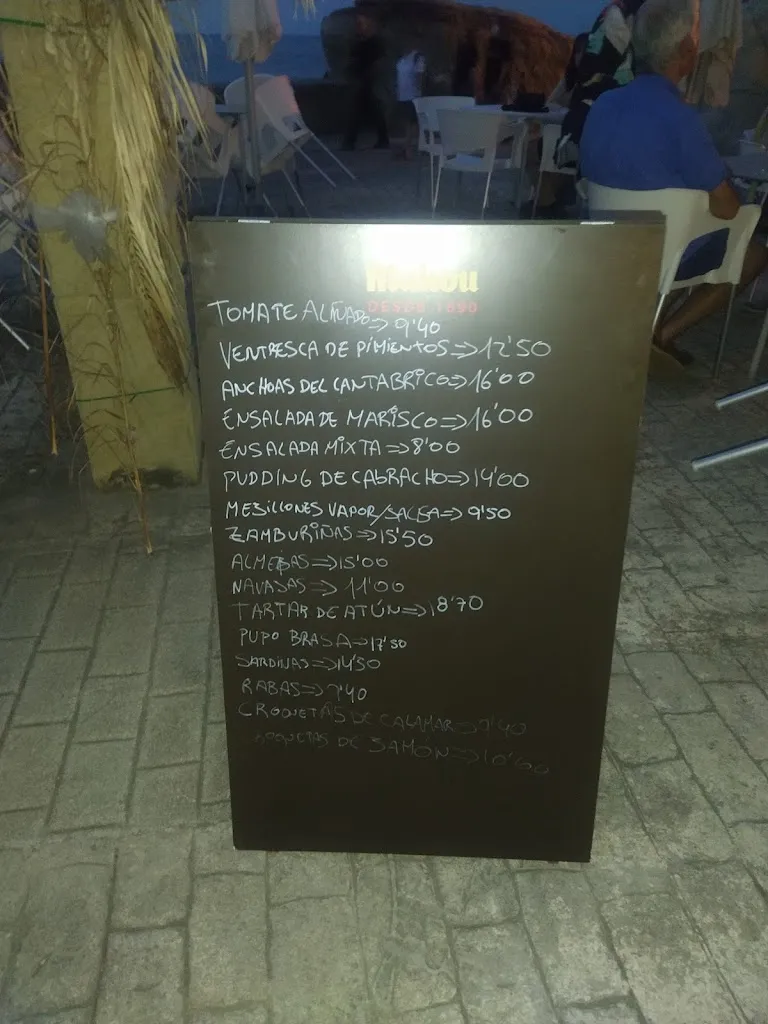 Mahou
DESDE 1890
TOMATE ALIÑADO=> 9'40
VENTRESCA DE PIMIENTOS=>12'50
ANCHOAS DEL CANTABRICO=>16'00
ENSALADA DE MARISCO=>16'00
ENSALADA MIXTA=>8'00
PUDDING DE CABRACHO=>14'00
MEJILLONES VAPOR/SALSA=>9'50
ZAMBURIÑAS=>15'50
ALMEJAS=>15'00
NAVAJAS=> 11'00
TARTAR DE ATÚN=>18'70
PUPO BRASA=>17'50
SARDINAS=>14'50
RABAS=>9'40
CROQUETAS DE CALAMAR=>9'40
CROQUETAS DE JAMON=>10'60